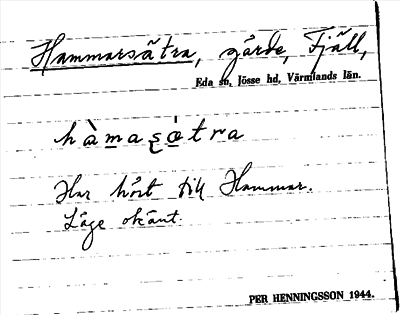 Hammarsätra, gärde, Fjäll,
Eda sn, Jösse hd, Värmlands län.
hàmasȯtra
Har hört till Hammar.
Läge okänt.
PER HENNINGSSON 1944.